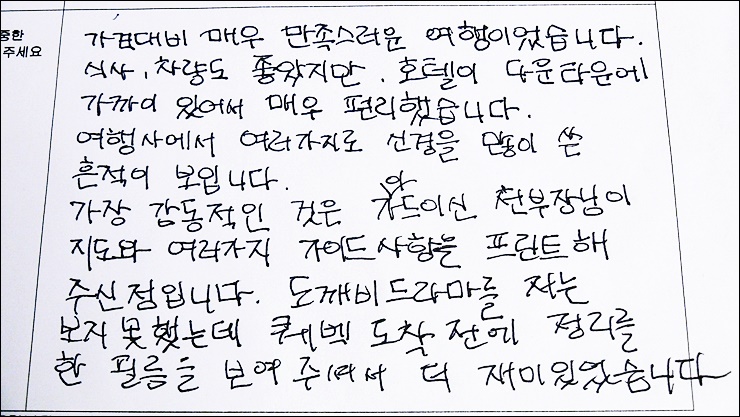 중한
주세요
가격대비 매우 만족스러운 여행이었습니다.
식사, 차량도 좋았지만, 호텔이 다운타운에
가까이 있어서 매우 편리했습니다.
여행사에서 여러가지로 신경을 많이 쓴
흔적이 보입니다.
가장 감동적인 것은 가이드이신 천부장님이
지도와 여러가지 가이드사항을 프린트해
주신점입니다. 도깨비드라마를 저는
보지 못했는데 퀘벡 도착전에 정리를
한 필름을 보여주셔서 더 재미있었습니다